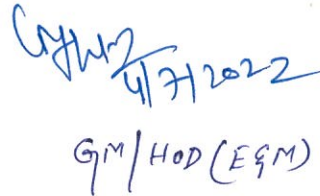 4/7/2022
GM/HOD(E&M)